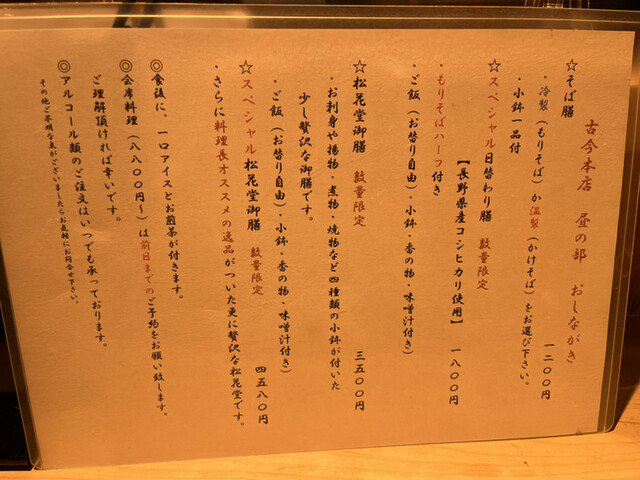 古今本店 昼の部 おしながき
☆そば膳 一二〇〇円
・冷製（もりそば）か温製（かけそば）をお選び下さい。
・小鉢一品付
☆スペシャル日替わり膳 数量限定
【長野県産コシヒカリ使用】 一八〇〇円
・もりそばハーフ付き
・ご飯（お替り自由）・小鉢・香の物・味噌汁付き）
☆松花堂御膳 数量限定 三五〇〇円
・お刺身や揚物・煮物・焼物など四種類の小鉢が付いた
少し贅沢な御膳です。
・ご飯（お替り自由）・小鉢・香の物・味噌汁付き）
☆スペシャル松花堂御膳 数量限定 四五八〇円
・さらに料理長オススメの逸品がついた更に贅沢な松花堂です。
◎食後に、一口アイスとお煎茶が付きます。
◎会席料理（八八〇〇円～）は前日までのご予約をお願い致します。
ご理解頂ければ幸いです。
◎アルコール類のご注文はいつでも承っております。
その他ご不明な点がございましたらお気軽にお問合せ下さい。